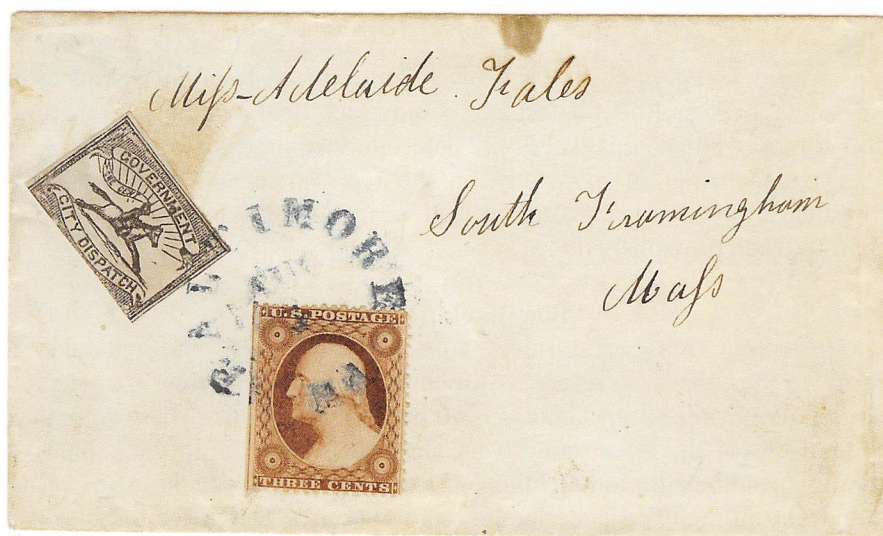 Miss Adelaide Fales
South Framingham
Mass
GOVERNMENT
CITY DISPATCH
BALTIMORE
Md.
U.S. POSTAGE
THREE CENTS